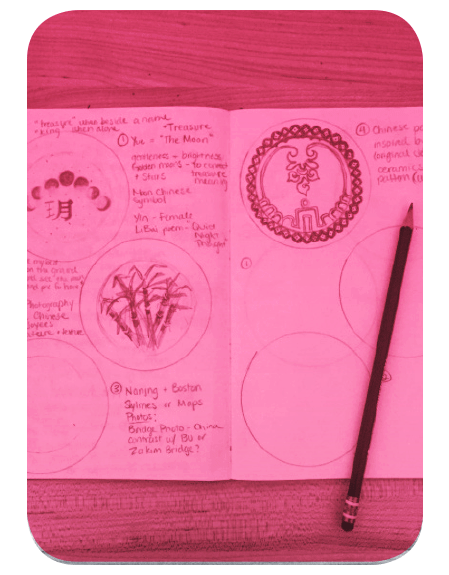 "treasure" when beside a name
"King" when alone
① Yue = "The Moon"
"Treasure
gentleness + brightness
+ Stars
treasure
meaning
Main Chinese
Symbol
Yin - Female
Li Bai poem -
Quiet
Night
Thought
玥
Photography
Chinese
③ Nanjing + Boston
Skylines or Maps
Photos:
Bridge Photo - China
contrast w/ BU or
Zakim Bridge?
④ Chinese
inspired by
(original
ceramics
pattern
①